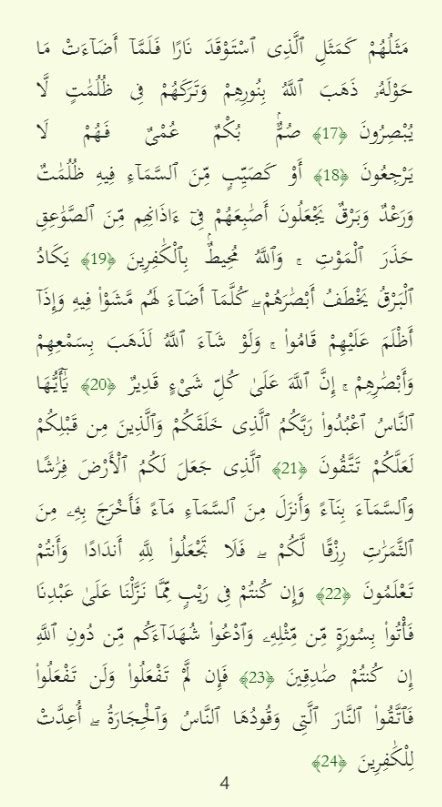 مَثَلُهُمْ كَمَثَلِ ٱلَّذِى ٱسْتَوْقَدَ نَارًا فَلَمَّآ أَضَآءَتْ مَا
حَوْلَهُۥ ذَهَبَ ٱللَّهُ بِنُورِهِمْ وَتَرَكَهُمْ فِى ظُلُمَٰتٍ لَّا
يُبْصِرُونَ ﴿17﴾ صُمٌّۢ بُكْمٌ عُمْىٌ فَهُمْ لَا
يَرْجِعُونَ ﴿18﴾ أَوْ كَصَيِّبٍ مِّنَ ٱلسَّمَآءِ فِيهِ ظُلُمَٰتٌ
وَرَعْدٌ وَبَرْقٌ يَجْعَلُونَ أَصَٰبِعَهُمْ فِىٓ ءَاذَانِهِم مِّنَ ٱلصَّوَٰعِقِ
حَذَرَ ٱلْمَوْتِ ۚ وَٱللَّهُ مُحِيطٌۢ بِٱلْكَٰفِرِينَ ﴿19﴾ يَكَادُ
ٱلْبَرْقُ يَخْطَفُ أَبْصَٰرَهُمْ ۖ كُلَّمَآ أَضَآءَ لَهُم مَّشَوْا۟ فِيهِ وَإِذَآ
أَظْلَمَ عَلَيْهِمْ قَامُوا۟ ۚ وَلَوْ شَآءَ ٱللَّهُ لَذَهَبَ بِسَمْعِهِمْ
وَأَبْصَٰرِهِمْ ۚ إِنَّ ٱللَّهَ عَلَىٰ كُلِّ شَىْءٍ قَدِيرٌ ﴿20﴾ يَٰٓأَيُّهَا
ٱلنَّاسُ ٱعْبُدُوا۟ رَبَّكُمُ ٱلَّذِى خَلَقَكُمْ وَٱلَّذِينَ مِن قَبْلِكُمْ
لَعَلَّكُمْ تَتَّقُونَ ﴿21﴾ ٱلَّذِى جَعَلَ لَكُمُ ٱلْأَرْضَ فِرَٰشًا
وَٱلسَّمَآءَ بِنَآءً وَأَنزَلَ مِنَ ٱلسَّمَآءِ مَآءً فَأَخْرَجَ بِهِۦ مِنَ
ٱلثَّمَرَٰتِ رِزْقًا لَّكُمْ ۖ فَلَا تَجْعَلُوا۟ لِلَّهِ أَندَادًا وَأَنتُمْ
تَعْلَمُونَ ﴿22﴾ وَإِن كُنتُمْ فِى رَيْبٍ مِّمَّا نَزَّلْنَا عَلَىٰ عَبْدِنَا
فَأْتُوا۟ بِسُورَةٍ مِّن مِّثْلِهِۦ وَٱدْعُوا۟ شُهَدَآءَكُم مِّن دُونِ ٱللَّهِ
إِن كُنتُمْ صَٰدِقِينَ ﴿23﴾ فَإِن لَّمْ تَفْعَلُوا۟ وَلَن تَفْعَلُوا۟
فَٱتَّقُوا۟ ٱلنَّارَ ٱلَّتِى وَقُودُهَا ٱلنَّاسُ وَٱلْحِجَارَةُ ۖ أُعِدَّتْ
لِلْكَٰفِرِينَ ﴿24﴾
4